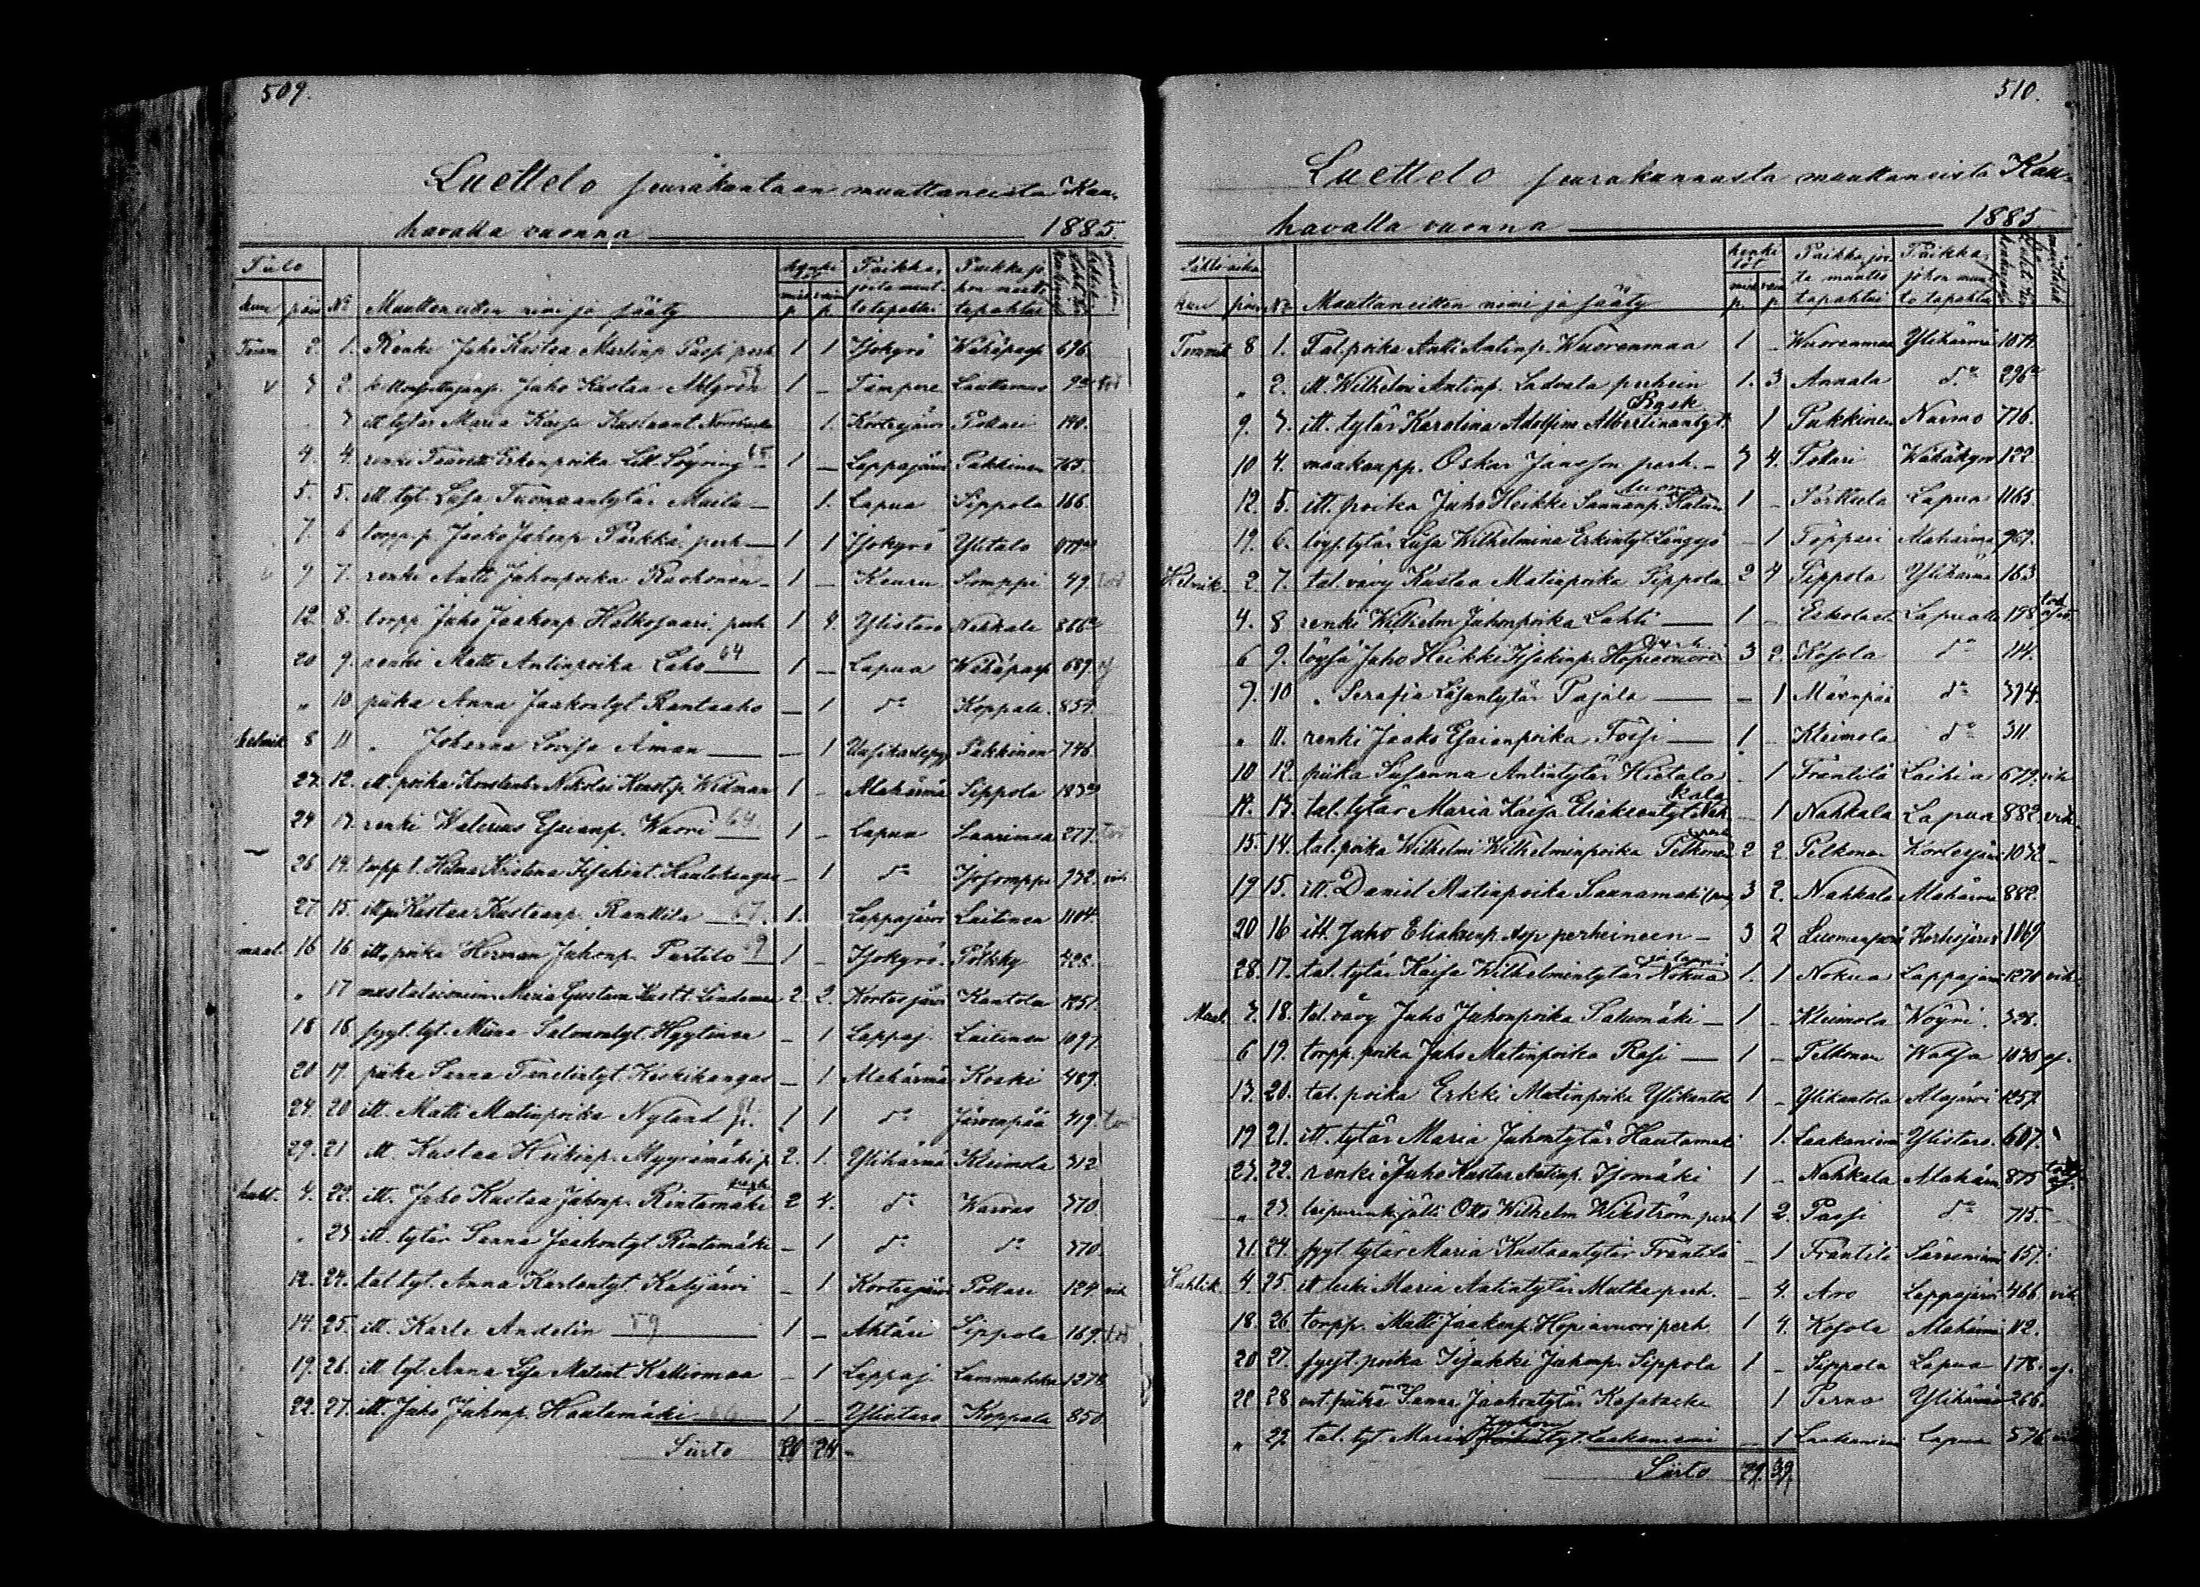 509.
Luettelo seurakuntaan muuttaneista Kau-
havalla vuonna 1885.
Tulo
kuu päiv No Muuttaneitten nimi ja sääty
henki löt
miesp. vaimp.
Paikka, josta muutto tapahtui
Paikka jo- hon muutto tapahtui
Tamm 2. 1. Renki Juho Kustaa Martinp. Passi perh. 1 1 Isokyrö Wähäpassi 696.
v 3 2. Juho Kustaa Ahlgren 59 1 – Tampere Luttamus 92 tod
3 itt tytär Maria Kaisa Kustaant. 1. Kortesjärvi Pollari 140.
4. 4. renki 65 1 – Lappajärvi Pukkinen 765.
5. 5. itt. tyt. Liisa Tuomaantytär Maila – 1. Lapua Sippola 166.
7. 6 torpp. Jaako Juhonp. Parkka perh 1 1 Isokyrö Ylitalo
9 7. renki Antti Juhonpoika Rachonen 1 – Keuru Somppi 49. tod
12. 8. torpp. Juho Jaakonp. Halkosaari. perh 1 4. Ylistaro Nahkala 866
20 9. renki Matti Antinpoika Laho 64 1 – Lapua Wähäpassi 689.
" 10 piika Anna Jaakontyt Rantaaho – 1 do Koppala 854.
helmik 8 11 " Johanna Lovisa Åman – 1 Uusikaarlepyy Pukkinen 746.
27. 12. itt. poika Konstantin Nikolai Kustp. Widman 1 – Alahärmä Sippola 183
24 13. renki Walerius Esaianp. Wuori 64 1 – Lapua Laurimaa 277. tod
26 14. torpp. t. Hilma Kristina Iisakint. Hautakangas – 1 do Isosomppi 932. vih
27 15. ittp. Kustaa Kustaanp. Ranttila 67. 1. Lappajärvi Luitinen 1104.
maal. 16 16. itt. poika Herman Juhonp. Partilo 1 – Isokyrö. Pölkky 425.
" 17 Maria Gustava Kustt. Lindeman 2. 2. Kortesjärvi Kantola 1251.
18 18. syyt. tyt. Miina Salomontyt. Hyytinen – 1 Lappaj. Luitinen 1097.
20 19. piika Sanna Keskikangas – 1 Alahärmä Koski 489.
24. 20 itt. Matti Matinpoika Nylund 1 1 do Järvenpää 419. tod
29. 21 itt. Kustaa Heikinp. Myyrämäki p. 2. 1. Ylihärmä Kleimola 312
huht. 4. 22. itt. Juho Kustaa Juhonp. Rintamäki perh 2 4. do Warvas 370
" 23 itt. tytär Sanna Jaakontyt Rintamäki – 1 do do 370.
12. 24. tal. tyt. Anna Karlontyt. Katijärvi 1. Kortesjärvi Pollari 124 vih
14. 25. itt. Karle Andelin 59 1 – Ähtäri Sippola 169. tod
19. 26. itt tyt. Anna Lisa Matint. Kalliomaa – 1 Lappaj. Lammashar 1278.
22. 27. itt. Juho Juhonp. Hautamäki 66 1 – Ylistaro Koppala 850
Siirto 20 24.
510.
Luettelo seurakunnasta muuttaneista Kau-
havalla vuonna 1885
Lähtö aika
kuu päiv No Muuttaneitten nimi ja sääty
henki löt
miesp. vaimp.
Paikka, jos- ta muutto tapahtui
Paikka johon muut- to tapahtui
Tammik 8 1. Tal. poika Antti Antinp. Wuorenmaa 1 – Wuorenmaa Ylihärmä 1074.
" 2. itt. Wilhelmi Antinp. Ladvala perhein 1. 3 Annala do 296
9. 3. itt. tytär Karolina Adolfina Albertinantyt. Bask 1 Pukkinen Narmo 716.
10 4. maakaupp. Oskar Jansson perh. – 3 4. Pollari Wähäkyrö 122.
12. 5. itt. poika Juho Heikki Sannanp. Katan luoma 1 – Porkkola Lapua 1165.
19. 6. löys. tytär Liisa Wilhelmina Erkintyt Långsjö – 1 Töppäri Alahärmä 969.
Helmik. 2. 7. tal. vävy Kustaa Matinpoika Sippola 2 4 Sippola Ylihärmä 163
4. 8 renki Wilhelm Juhonpoika Lahti 1 – Eskola Lapualla 198. tod
6 9. löysä Juho Heikki Iisakinp. Hopiavuori perh. 3 2. Kosola do 114.
9. 10 " Serafia Liisantytär Pajala – 1 Mäenpää do 394.
" 11. renki Jaako Esaianpoika Foisi 1 – Kleimola do 311
10 12. piika Susanna Antintytär Hietala – 1 Fräntilä Laihia 679. vih
14. 13. tal. tytär Maria Kaisa Eliakseentyt. Nah kala – 1 Nahkala Lapua 882. vih.
15. 14. tal. poika Wilhelmi Wilhelminpoika Pelkonen perh 2 2. Pelkonen Kortesjärvi 1032 –
19 15. itt. Daniel Matinpoika Saunamäki (perh) 3 2. Nahkala Alahärmä 882.
20 16 itt. Juho Eliakenp. Asp perheineen – 3 2 Luomanpää Kortesjärvi 1169
28. 17. tal. tytär Kaisa Wilhelmintytär Nokua ja lapsi 1. 1 Nokua Lappajärvi 1270 vih.
Maal. 3. 18. tal. vävy Juho Juhonpoika Salumäki – 1 – Kleimola Wöyri. 328.
6 19. torpp. poika Juho Matinpoika Rasi 1 – Pelkonen Waasa 1030
13. 20. tal. poika Erkki Matinpoika Ylikantola 1 – Ylikantola Alajärvi 1259.
19 21. itt. tytär Maria Juhontytär Hautamäki 1. Laakaniemi Ylistaro. 607.
23. 22. renki Juho Kustaa Antinp. Isomäki 1 – Nahkala Alahärmä 875
" 23. Otto Wilhelm Wikström perh 1 2. Passi do 715.
31. 24. syyt. tytär Maria Kustaantytär Fräntilä – 1 Fräntilä Särenimi 657.
Huhtik. 4. 25. itt leski Maria Antintytär Mutka perh. – 4. Aro Lappajärvi 466 vih.
18. 26. torpp. Matti Jaakonp. Hopiavuori perh 1 4. Kosola Alahärmä 112.
20 27. syyt. poika Iisakki Juhonp. Sippola 1 – Sippola Lapua 178.
22 28 ent. piika Sanna Jaakontytär Kasatacke 1 Perna Ylihärmä 266.
" 29. tal. tyt Maria Jaakon tyt. Laakaniemi – 1 Laakaniemi Lapua 576
Siirto 29. 39.